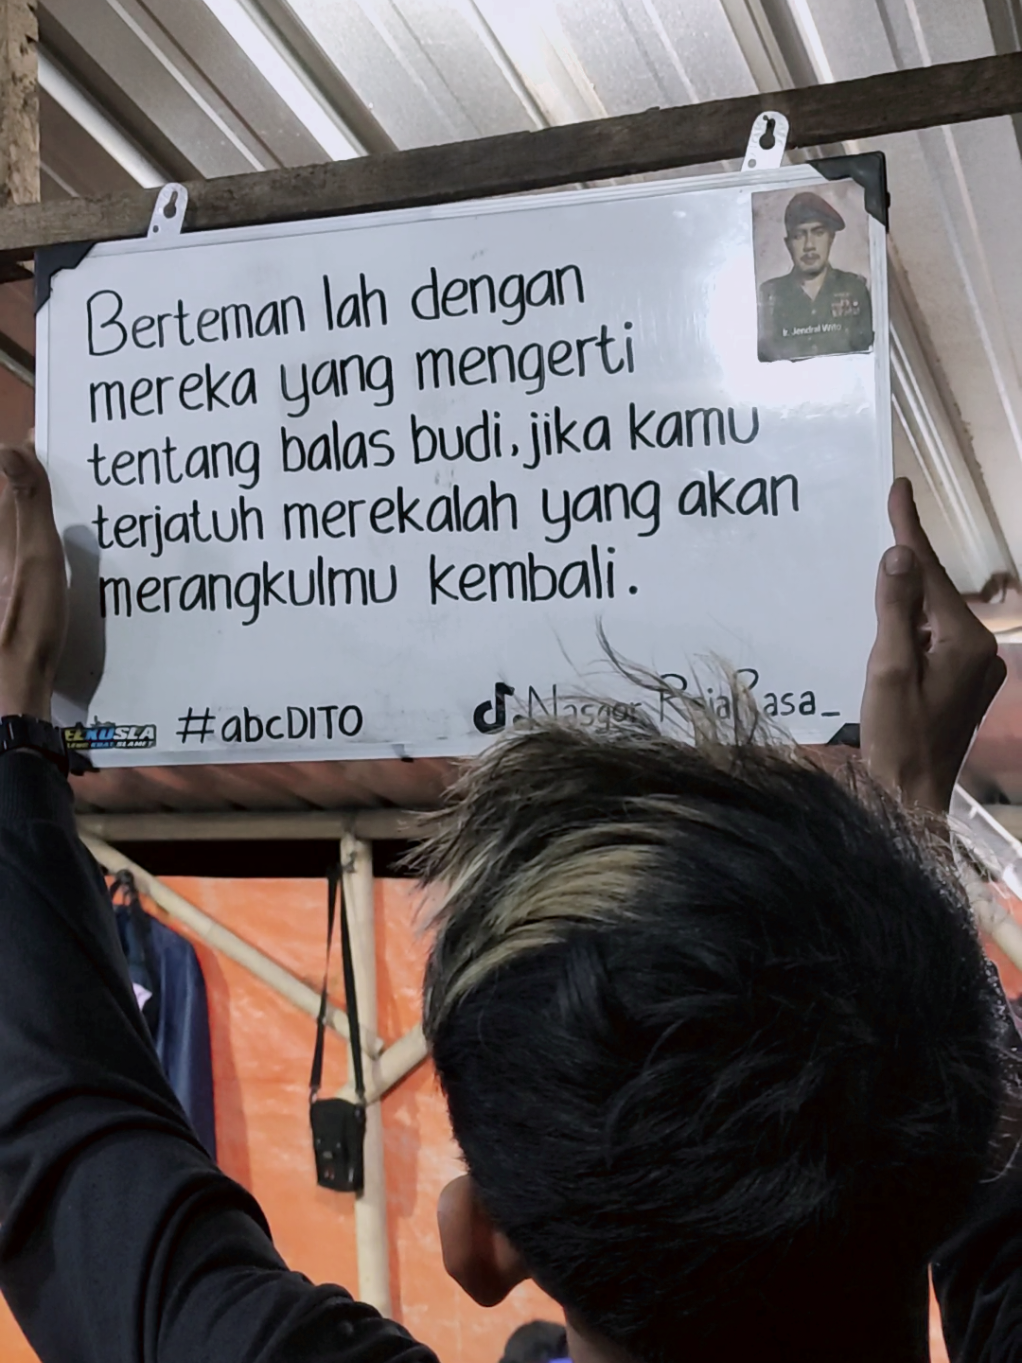 Ir. Jendral Wito
Berteman lah dengan
mereka yang mengerti
tentang balas budi, jika kamu
terjatuh merekalah yang akan
merangkulmu kembali.
#abcDITO
Nasgor_RajaRasa_